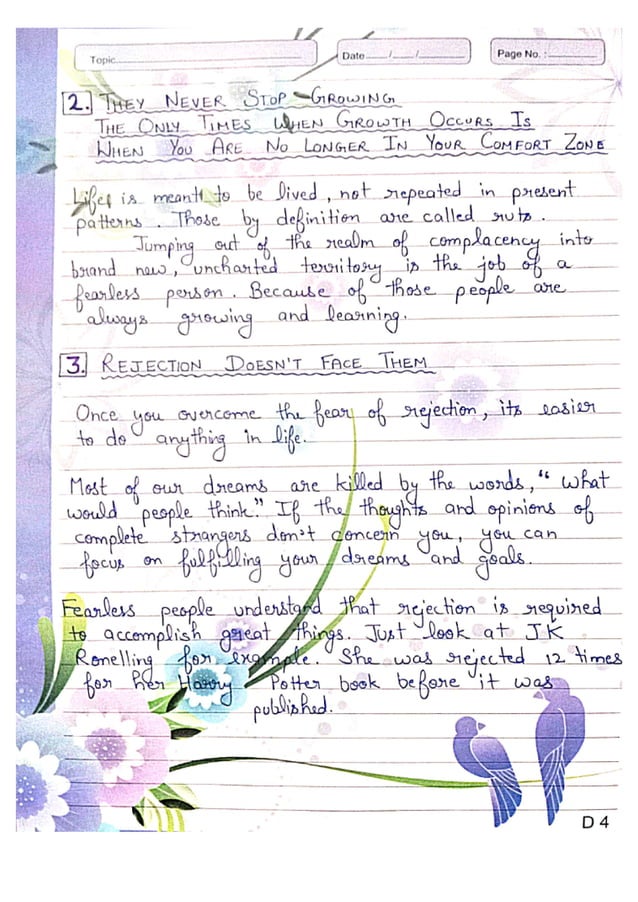 Topic
Date / /
Page No. :
2. THEY NEVER STOP GROWING
THE ONLY TIMES WHEN GROWTH OCCURS IS
WHEN YOU ARE NO LONGER IN YOUR COMFORT ZONE
Life is meant to be lived, not repeated in present
patterns. Those by definition are called ruts.
Jumping out of the realm of complacency into
brand new, uncharted territory is the job of a
fearless person. Because of those people are
always growing and learning.
3. REJECTION DOESN'T FACE THEM
Once you overcome the fear of rejection, its easier
to do anything in life.
Most of our dreams are killed by the words, "What
would people think." If the thoughts and opinions of
complete strangers don't concern you, you can
focus on fulfilling your dreams and goals.
Fearless people understand that rejection is required
to accomplish great things. Just look at J.K
Ronelling for example. She was rejected 12 times
for her Harry Potter book before it was
published.
D 4